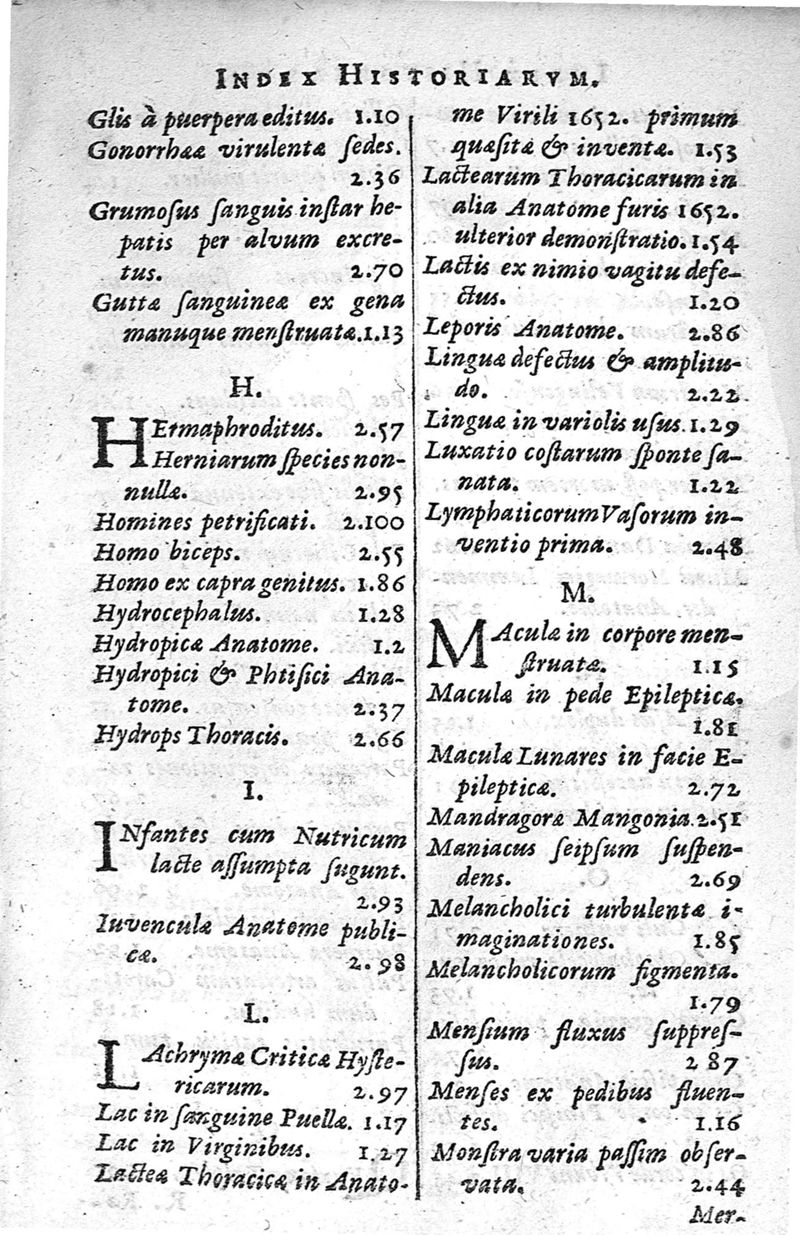 INDEX HISTORIARVM.
Glis à puerpera editus. 1.10
Gonorrhææ virulentæ ſedes.
2.36
Grumoſus ſanguis inſtar he-
patis per alvum excre-
tus. 2.70
Guttæ ſanguineæ ex gena
manuque menſtruatæ. 1.13
H.
HErmaphroditus. 2.57
Herniarum ſpecies non-
nullæ. 2.95
Homines petrificati. 2.100
Homo biceps. 2.55
Homo ex capra genitus. 1.86
Hydrocephalus. 1.28
Hydropicæ Anatome. 1.2
Hydropici & Phtiſici Ana-
tome. 2.37
Hydrops Thoracis. 2.66
I.
INfantes cum Nutricum
lacte aſſumpta ſugunt.
2.93
Iuvenculæ Anatome publi-
cæ. 2.98
L.
LAchrymæ Criticæ Hyſte-
ricarum. 2.97
Lac in ſanguine Puellæ. 1.17
Lac in Virginibus. 1.27
Lacteæ Thoracicæ in Anato-
me Virili 1652. primum
quæſitæ & inventæ. 1.53
Lactearum Thoracicarum in
alia Anatome furis 1652.
ulterior demonſtratio. 1.54
Lactis ex nimio vagitu defe-
ctus. 1.20
Leporis Anatome. 2.86
Linguæ defectus & amplitu-
do. 2.22
Linguæ in variolis uſus. 1.29
Luxatio coſtarum ſponte ſa-
nata. 1.22
Lymphaticorum Vaſorum in-
ventio prima. 2.48
M.
MAculæ in corpore men-
ſtruatæ. 1.15
Maculæ in pede Epilepticæ.
1.81
Maculæ Lunares in facie E-
pilepticæ. 2.72
Mandragoræ Mangonia. 2.51
Maniacus ſeipſum ſuſpen-
dens. 2.69
Melancholici turbulentæ i-
maginationes. 1.85
Melancholicorum figmenta.
1.79
Menſium fluxus ſuppreſ-
ſus. 2 87
Menſes ex pedibus fluen-
tes. 1.16
Monſtra varia paſſim obſer-
vata. 2.44
Mer-